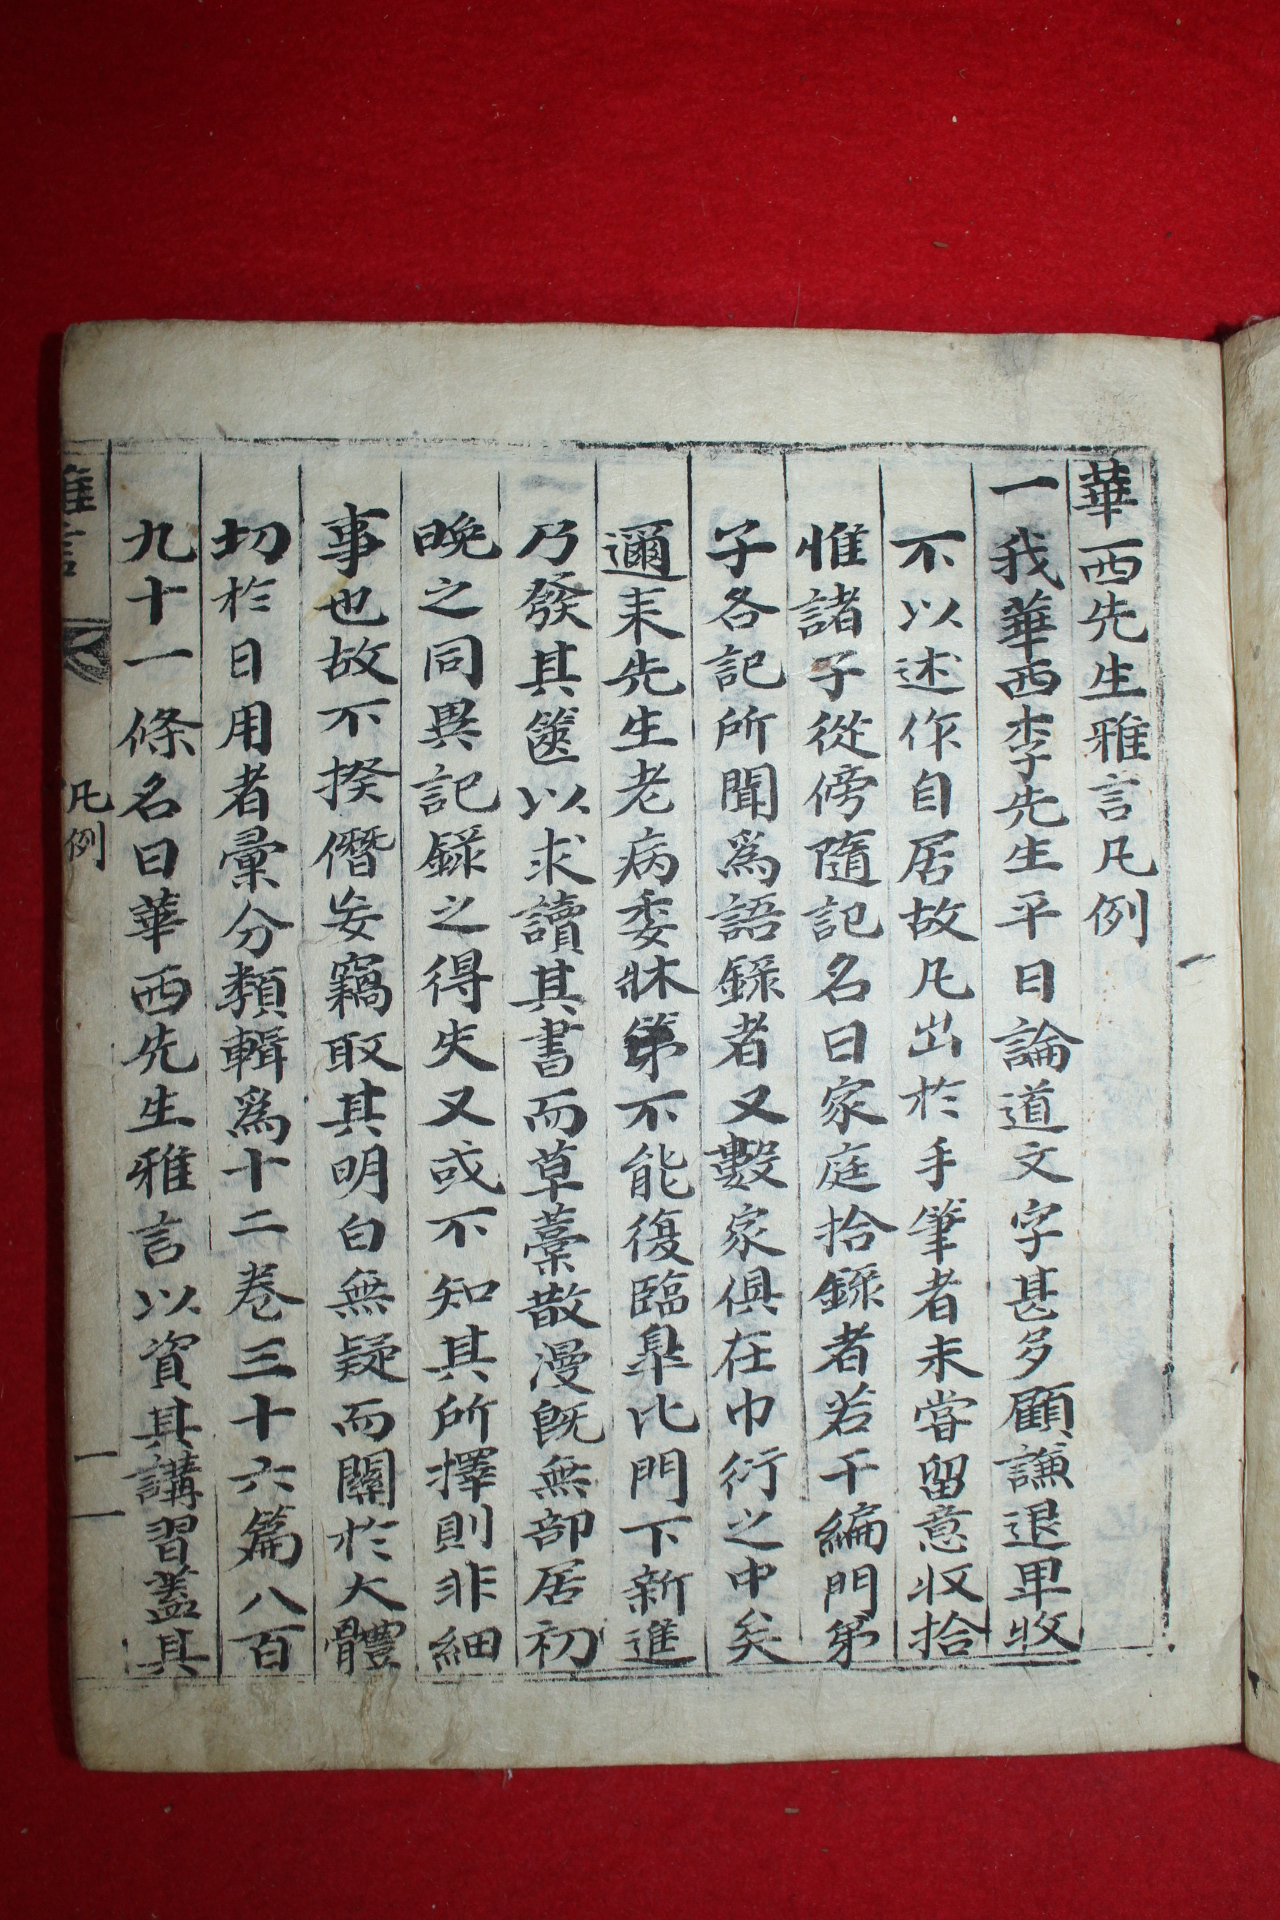 華西先生雅言凡例
一我華西李先生平日論道文字甚多顧謙退卑牧
不以述作自居故凡出於手筆者未嘗留意收拾
惟諸子從傍隨記名曰家庭拾錄者若干編門弟
子各記所聞爲語錄者又數家俱在巾衍之中矣
邇來先生老病委牀第不能復臨臯比門下新進
乃發其篋以求讀其書而草藁散漫旣無部居初
晩之同異記錄之得失又或不知其所擇則非細
事也故不揆僭妄竊取其明白無疑而關於大體
切於日用者彙分類輯爲十二卷三十六篇八百
九十一條名曰華西先生雅言以資其講習蓋其
雅言
凡例
一